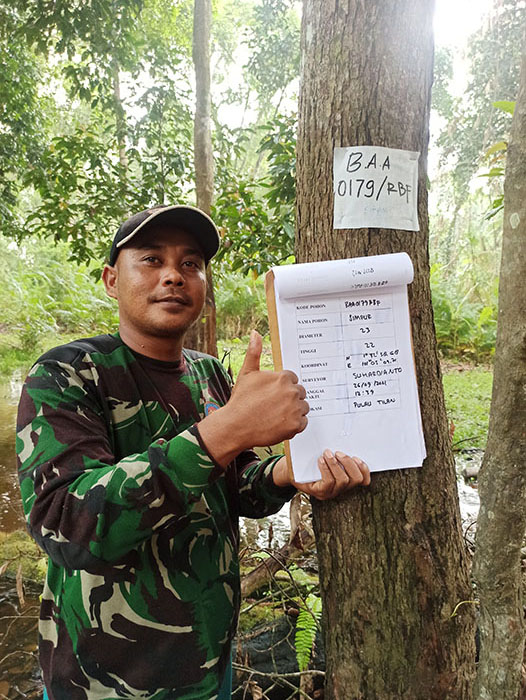 B.A.A
0179/RBF
KODE POHON BAA0179RBF
NAMA POHON SIMPUR
DIAMETER 23
TINGGI 22
KOORDINAT N
E
SURVEYOR SUHARDIANTO
26/09/2021
12:39
PULAU TILAN